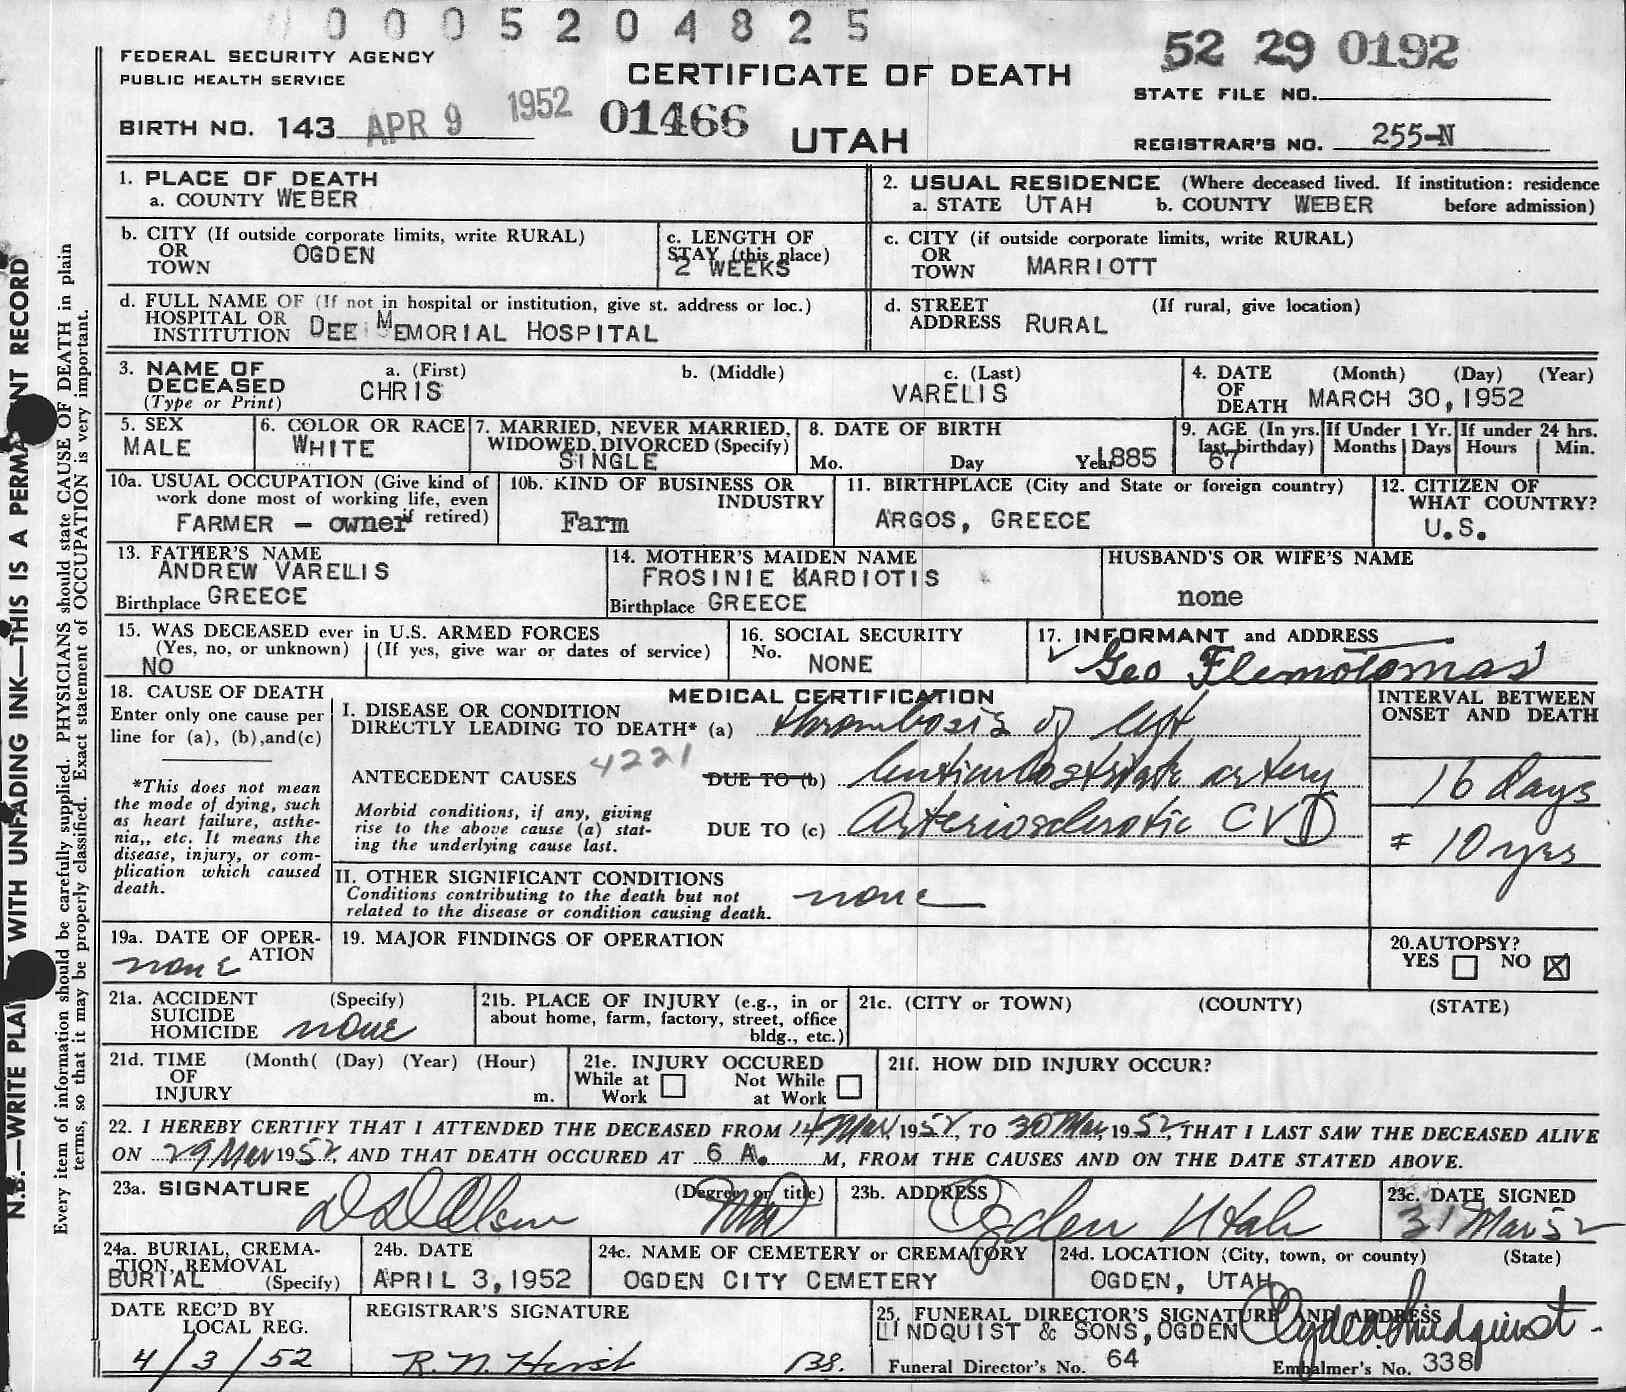 0005204825
FEDERAL SECURITY AGENCY
PUBLIC HEALTH SERVICE
CERTIFICATE OF DEATH
52 29 0192
STATE FILE NO.
BIRTH NO. 143 APR 9 1952 01466
UTAH
REGISTRAR'S NO. 255-N
1. PLACE OF DEATH
a. COUNTY WEBER
2. USUAL RESIDENCE (Where deceased lived. If institution: residence
a. STATE UTAH b. COUNTY WEBER before admission)
b. CITY (If outside corporate limits, write RURAL)
OR OGDEN
TOWN
c. LENGTH OF
STAY (this place)
2 WEEKS
c. CITY (if outside corporate limits, write RURAL)
OR
TOWN MARRIOTT
d. FULL NAME OF (If not in hospital or institution, give st. address or loc.)
HOSPITAL OR
INSTITUTION DEE MEMORIAL HOSPITAL
d. STREET (If rural, give location)
ADDRESS RURAL
3. NAME OF a. (First) b. (Middle) c. (Last)
DECEASED CHRIS VARELIS
(Type or Print)
4. DATE (Month) (Day) (Year)
OF
DEATH MARCH 30, 1952
5. SEX
MALE
6. COLOR OR RACE
WHITE
7. MARRIED, NEVER MARRIED,
WIDOWED, DIVORCED (Specify)
SINGLE
8. DATE OF BIRTH
Mo. Day Year 1885
9. AGE (In yrs.
last birthday)
67
If Under 1 Yr.
Months Days
If under 24 hrs.
Hours Min.
10a. USUAL OCCUPATION (Give kind of
work done most of working life, even
if retired)
FARMER - owner
10b. KIND OF BUSINESS OR
INDUSTRY
Farm
11. BIRTHPLACE (City and State or foreign country)
ARGOS, GREECE
12. CITIZEN OF
WHAT COUNTRY?
U.S.
13. FATHER'S NAME
ANDREW VARELIS
Birthplace GREECE
14. MOTHER'S MAIDEN NAME
FROSINIE KARDIOTIS
Birthplace GREECE
HUSBAND'S OR WIFE'S NAME
none
15. WAS DECEASED ever in U.S. ARMED FORCES
(Yes, no, or unknown) (If yes, give war or dates of service)
NO
16. SOCIAL SECURITY
No. NONE
17. INFORMANT and ADDRESS
Geo Flemotomas
18. CAUSE OF DEATH
Enter only one cause per
line for (a), (b), and (c)
*This does not mean
the mode of dying, such
as heart failure, asthe-
nia,, etc. It means the
disease, injury, or com-
plication which caused
death.
MEDICAL CERTIFICATION
I. DISEASE OR CONDITION
DIRECTLY LEADING TO DEATH* (a) thrombosis of left
4221
ANTECEDENT CAUSES DUE TO (b) lenticulostriate artery
Morbid conditions, if any, giving
rise to the above cause (a) stat-
ing the underlying cause last.
DUE TO (c) Arteriosclerotic CVD
INTERVAL BETWEEN
ONSET AND DEATH
16 days
± 10 yrs
II. OTHER SIGNIFICANT CONDITIONS
Conditions contributing to the death but not
related to the disease or condition causing death.
none
19a. DATE OF OPER-
ATION
none
19. MAJOR FINDINGS OF OPERATION
20. AUTOPSY?
YES NO X
21a. ACCIDENT (Specify)
SUICIDE
HOMICIDE none
21b. PLACE OF INJURY (e.g., in or
about home, farm, factory, street, office
bldg., etc.)
21c. (CITY or TOWN) (COUNTY) (STATE)
21d. TIME (Month( (Day) (Year) (Hour)
OF
INJURY m.
21e. INJURY OCCURED
While at Work Not While at Work
21f. HOW DID INJURY OCCUR?
22. I HEREBY CERTIFY THAT I ATTENDED THE DECEASED FROM 14 Mar, 1952, TO 30 Mar, 1952, THAT I LAST SAW THE DECEASED ALIVE
ON 29 Mar 1952, AND THAT DEATH OCCURED AT 6 A. M, FROM THE CAUSES AND ON THE DATE STATED ABOVE.
23a. SIGNATURE (Degree or title)
Olson MD
23b. ADDRESS
Ogden Utah
23c. DATE SIGNED
31 Mar 52
24a. BURIAL, CREMA-
TION, REMOVAL
BURIAL (Specify)
24b. DATE
APRIL 3, 1952
24c. NAME OF CEMETERY or CREMATORY
OGDEN CITY CEMETERY
24d. LOCATION (City, town, or county) (State)
OGDEN, UTAH
DATE REC'D BY
LOCAL REG.
4/3/52
REGISTRAR'S SIGNATURE
R. N. Hirst BS.
25. FUNERAL DIRECTOR'S SIGNATURE AND ADDRESS
LINDQUIST & SONS, OGDEN Clyde Lindquist
Funeral Director's No. 64 Embalmer's No. 338
Every item of information should be carefully supplied. PHYSICIANS should state CAUSE OF DEATH in plain
terms, so that it may be properly classified. Exact statement of OCCUPATION is very important.
N.B.—WRITE PLAI WITH UNFADING INK—THIS IS A PERMA NT RECORD